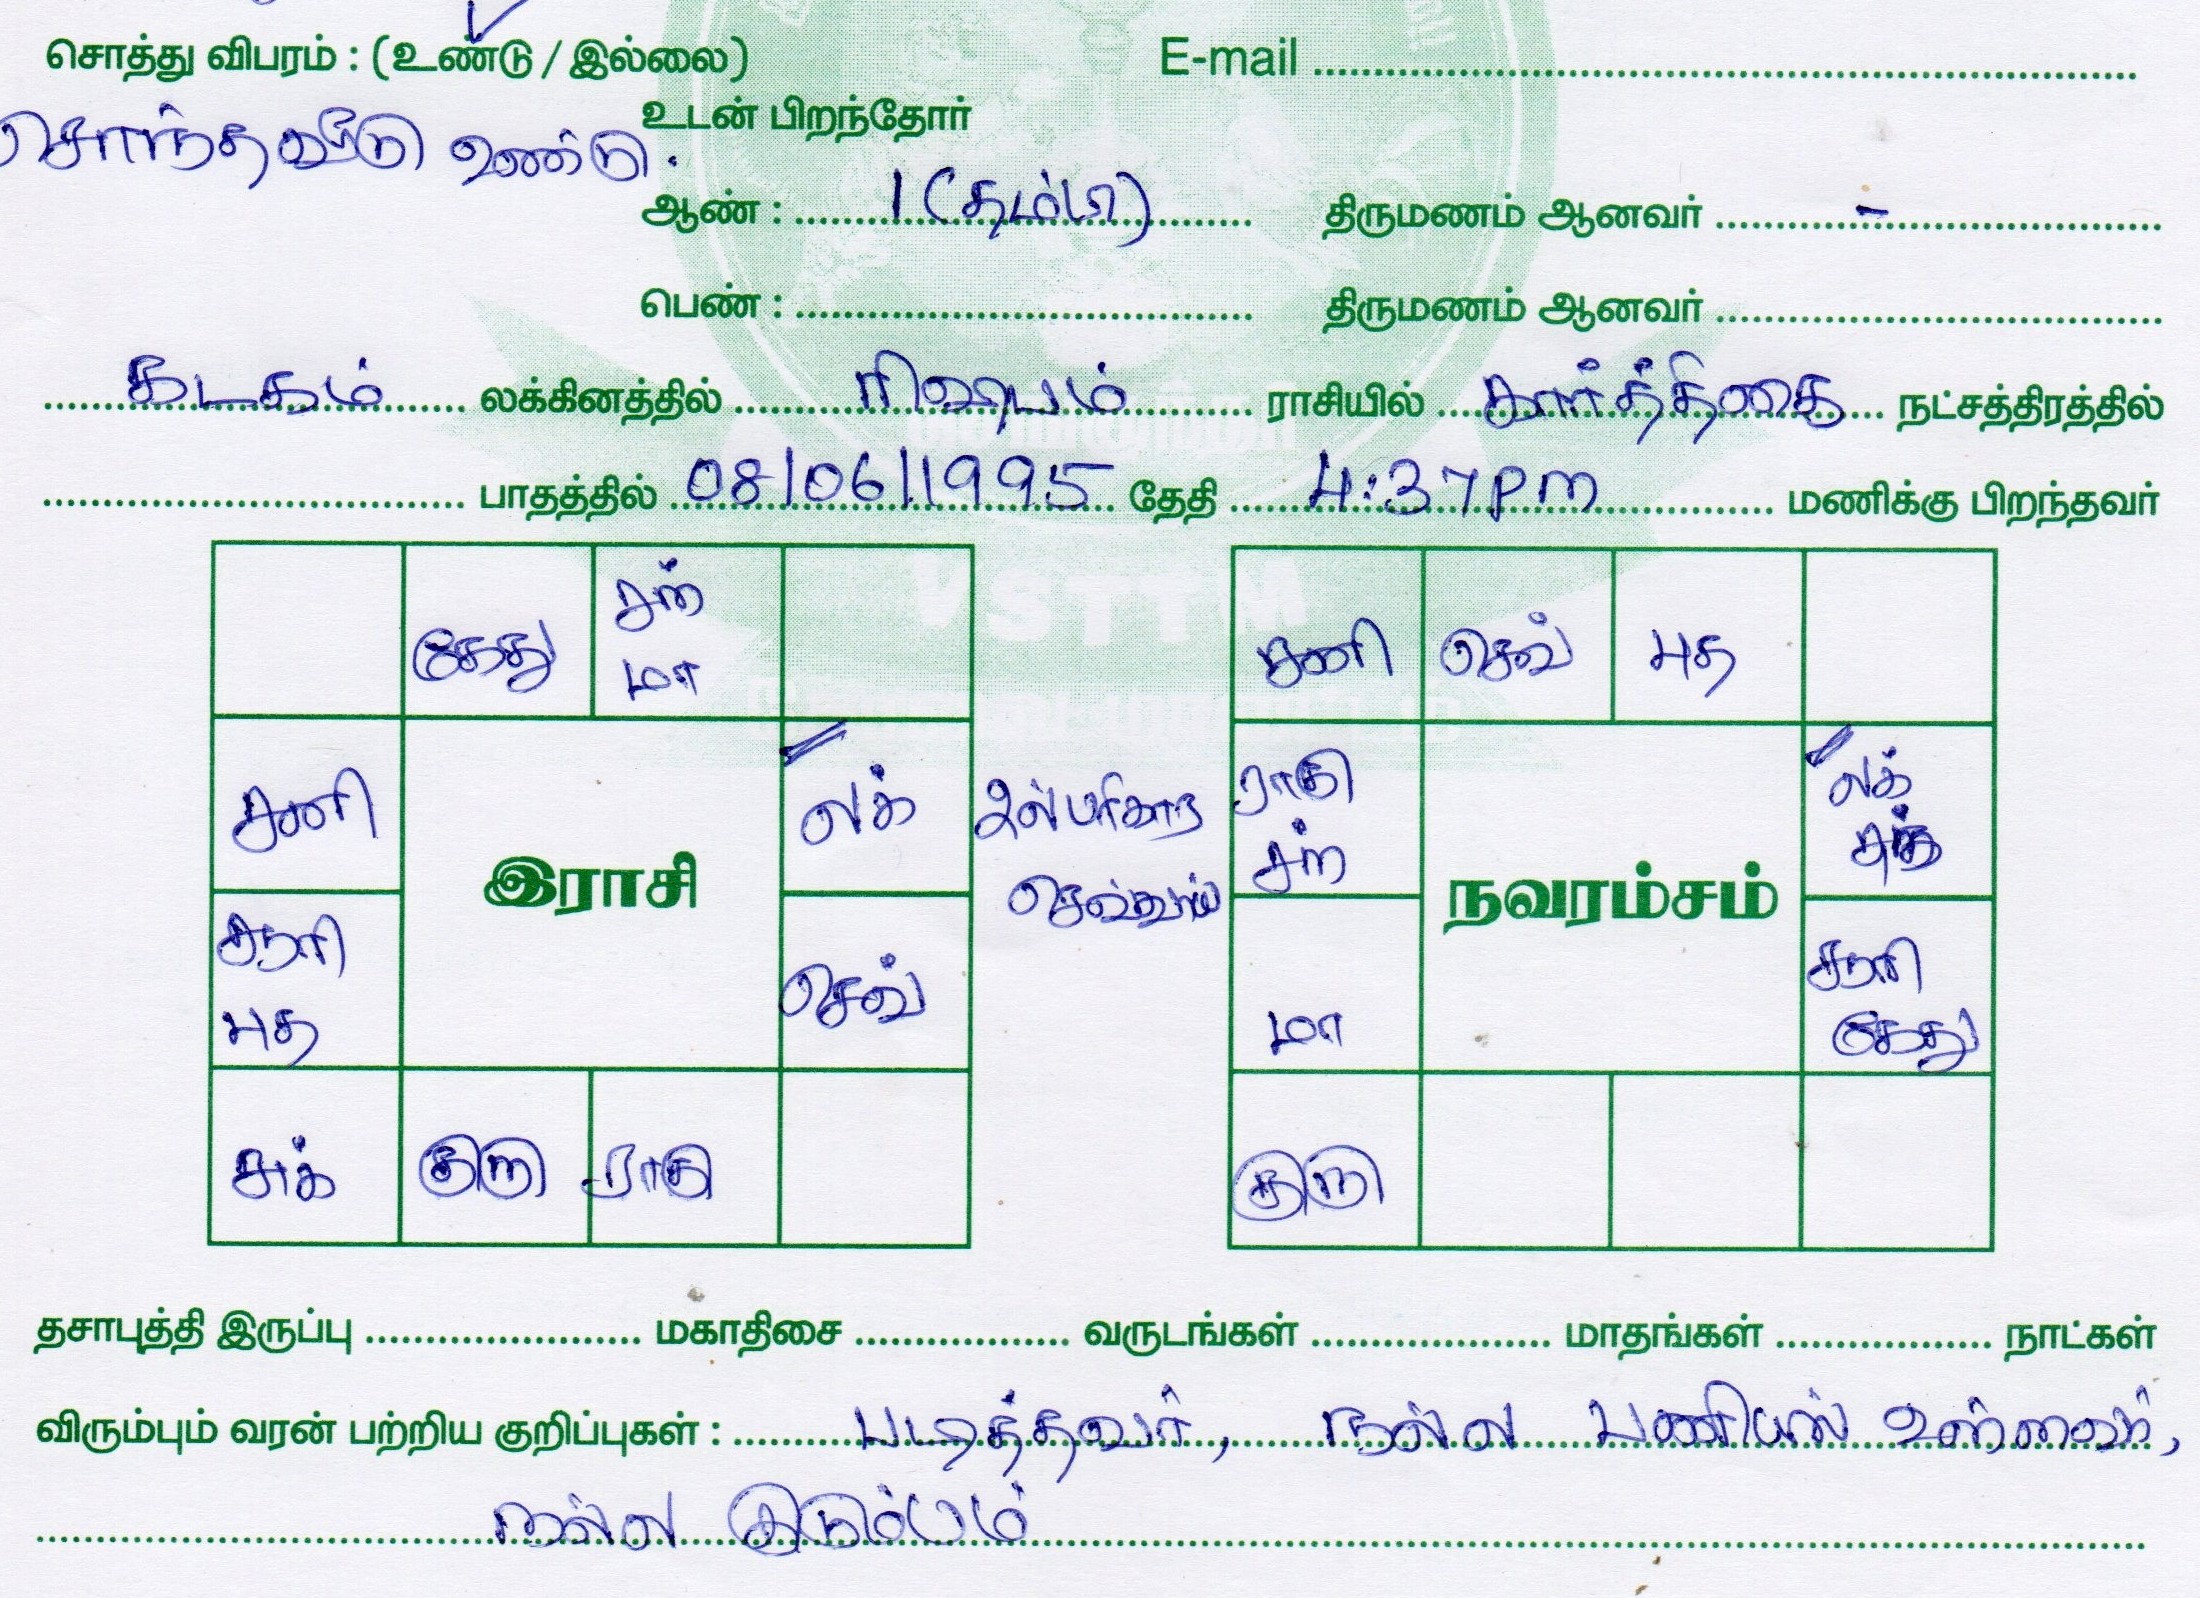 சொத்து விபரம் : (உண்டு / இல்லை) E-mail
சொந்த வீடு உண்டு. உடன் பிறந்தோர்
ஆண் : 1 (தம்பி) திருமணம் ஆனவர் -
பெண் : திருமணம் ஆனவர்
கடகம் லக்கினத்தில் ரிஷபம் ராசியில் கார்த்திகை நட்சத்திரத்தில்
பாதத்தில் 08/06/1995 தேதி 4:37pm மணிக்கு பிறந்தவர்
VSTTM
கேது
சந்
மா
சனி
லக்
சூரி
புத
இராசி
செவ்
சுக்
குரு
ராகு
செவ்வாய்
சனி
செவ்
புத
ராகு
லக்
நவரம்சம்
மா
சூரி
கேது
குரு
தசாபுத்தி இருப்பு மகாதிசை வருடங்கள் மாதங்கள் நாட்கள்
விரும்பும் வரன் பற்றிய குறிப்புகள் : படித்தவர், நல்ல பணியில் உள்ளவர்,
நல்ல குடும்பம்